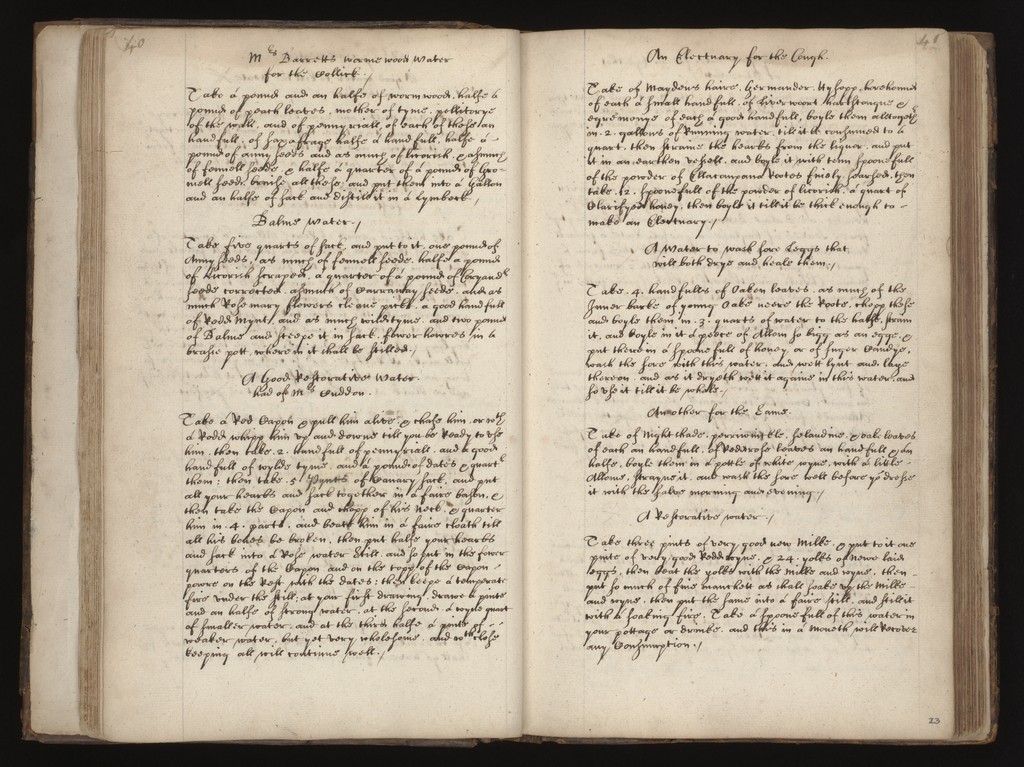 40
Mrs Barretts worme wood Water
for the Collick ./
Take a pound and an halfe of wormwood, halfe a
pound of peach leaves, mother of tyme, pellitorye
of the wall, and of pennyriall, of each of these an
handfull, of saxafrage halfe a handfull, halfe a
pound of anny seeds and as much of licorish, & asmuch
of fennell seeds, & halfe a quarter of a pound of Gro-
mell seeds, bruise all these, and put them into a Gallon
and an halfe of sack and distill it in a Lymbeck ./
Balme Water ./
Take five quarts of sack, and put to it, one pound of
Anny seeds, as much of fennell seeds, halfe a pound
of licorish scraped, a quarter of a pound of Coryand
seeds corrected, asmuch of Carraway seeds, and as
much Rosemary flowers cleane pickt, a good handfull
of Redd Mynt, and as much wild tyme, and two pound
of Balme and steepe it in sack, fower howres in a
brasse pott, wherein it shall be stilled ./
A Good Restorative Water
had of Mrs Cuddon.
Take a Red Capon & pull him alive, & chase him, or wth
a Rodd whipp him up and downe till you be Ready to use
him, then take .2. handfull of pennyriall, and a good
handfull of wylde tyme, and a pound of dates & quartr
them: then take .5. Pynts of Canary sack, and put
all your hearbs and sack together in a faire bason, &
then take the Capon and chopp of his Neck, & quarter
him in .4. parts, and beate him in a faire cloath till
all his bones be broken, then put halfe your hearbs
and sack into a Rose water still, and so put in the fower
quarters of the Capon and on the topp of the Capon
powre on the Rest with the dates: then keepe a temperate
fire under the still; at your first drawing, drawe a pinte
and an halfe of strong water, at the second, a wyne quart
of smaller water, and at the third halfe a pinte of
weaker water, but yet very wholesome, and wth close
keeping all will continue well ./
41
An Electuary for the Cough.
Take of Maydens haire, Germander, Hysopp, horehound
of each a small handfull, of liverwort harthtongue &
egremonye of each a good handfull, boyle them altogethr
in .2. gallons of Running water, till it be consumed to a
quart, then straine the hearbs from the liquor, and put
it in an earthen vessell, and boyle it with tenn spoonefull
of the powder of Ellacompana Rootes finely searsed, then
take .12. spoonefull of the powder of licorish, a quart of
Clarifyed honey, then boyle it till it be thick enough to
make an Electuary ./
A Water to wash sore Leggs that
will both drye and heale them ./
Take .4. handfulls of Oaken leaves, as much of the
Inner barke of young Oake neere the Roote, chopp these
and boyle them in .3. quarts of water to the halfe, strain
it, and boyle in it a peece of Allom so bigg as an egge, &
put therein a spoonefull of honey, or of suger Candye,
wash the sore with this water, and wett lynt and laye
thereon, and as it dryeth wett it againe in this water, and
so use it till it be whole.
Another for the Same.
Take of Nightshade, perriwinckle, Selandine, & oake leaves
of each an handfull, of Redd rose leaves an handfull & an
halfe, boyle them in a pottle of white wyne, with a little
Allome, strayne it, and wash the sore well before yo dresse
it with the salve morning and evening ./
A Restorative water ./
Take three pints of very good new Milke, & put to it one
pinte of very good Redd wyne, & 24. yolks of newe laid
eggs, then beat the yolks with the Milke and wyne, then
put so much of fine manchett as shall soake up the Milke
and wyne, then put the same into a faire still, and still it
with a soaking fire, Take a spoonefull of this water in
your pottage or drinke, and this in a Moneth will Recover
any Consumption ./
23